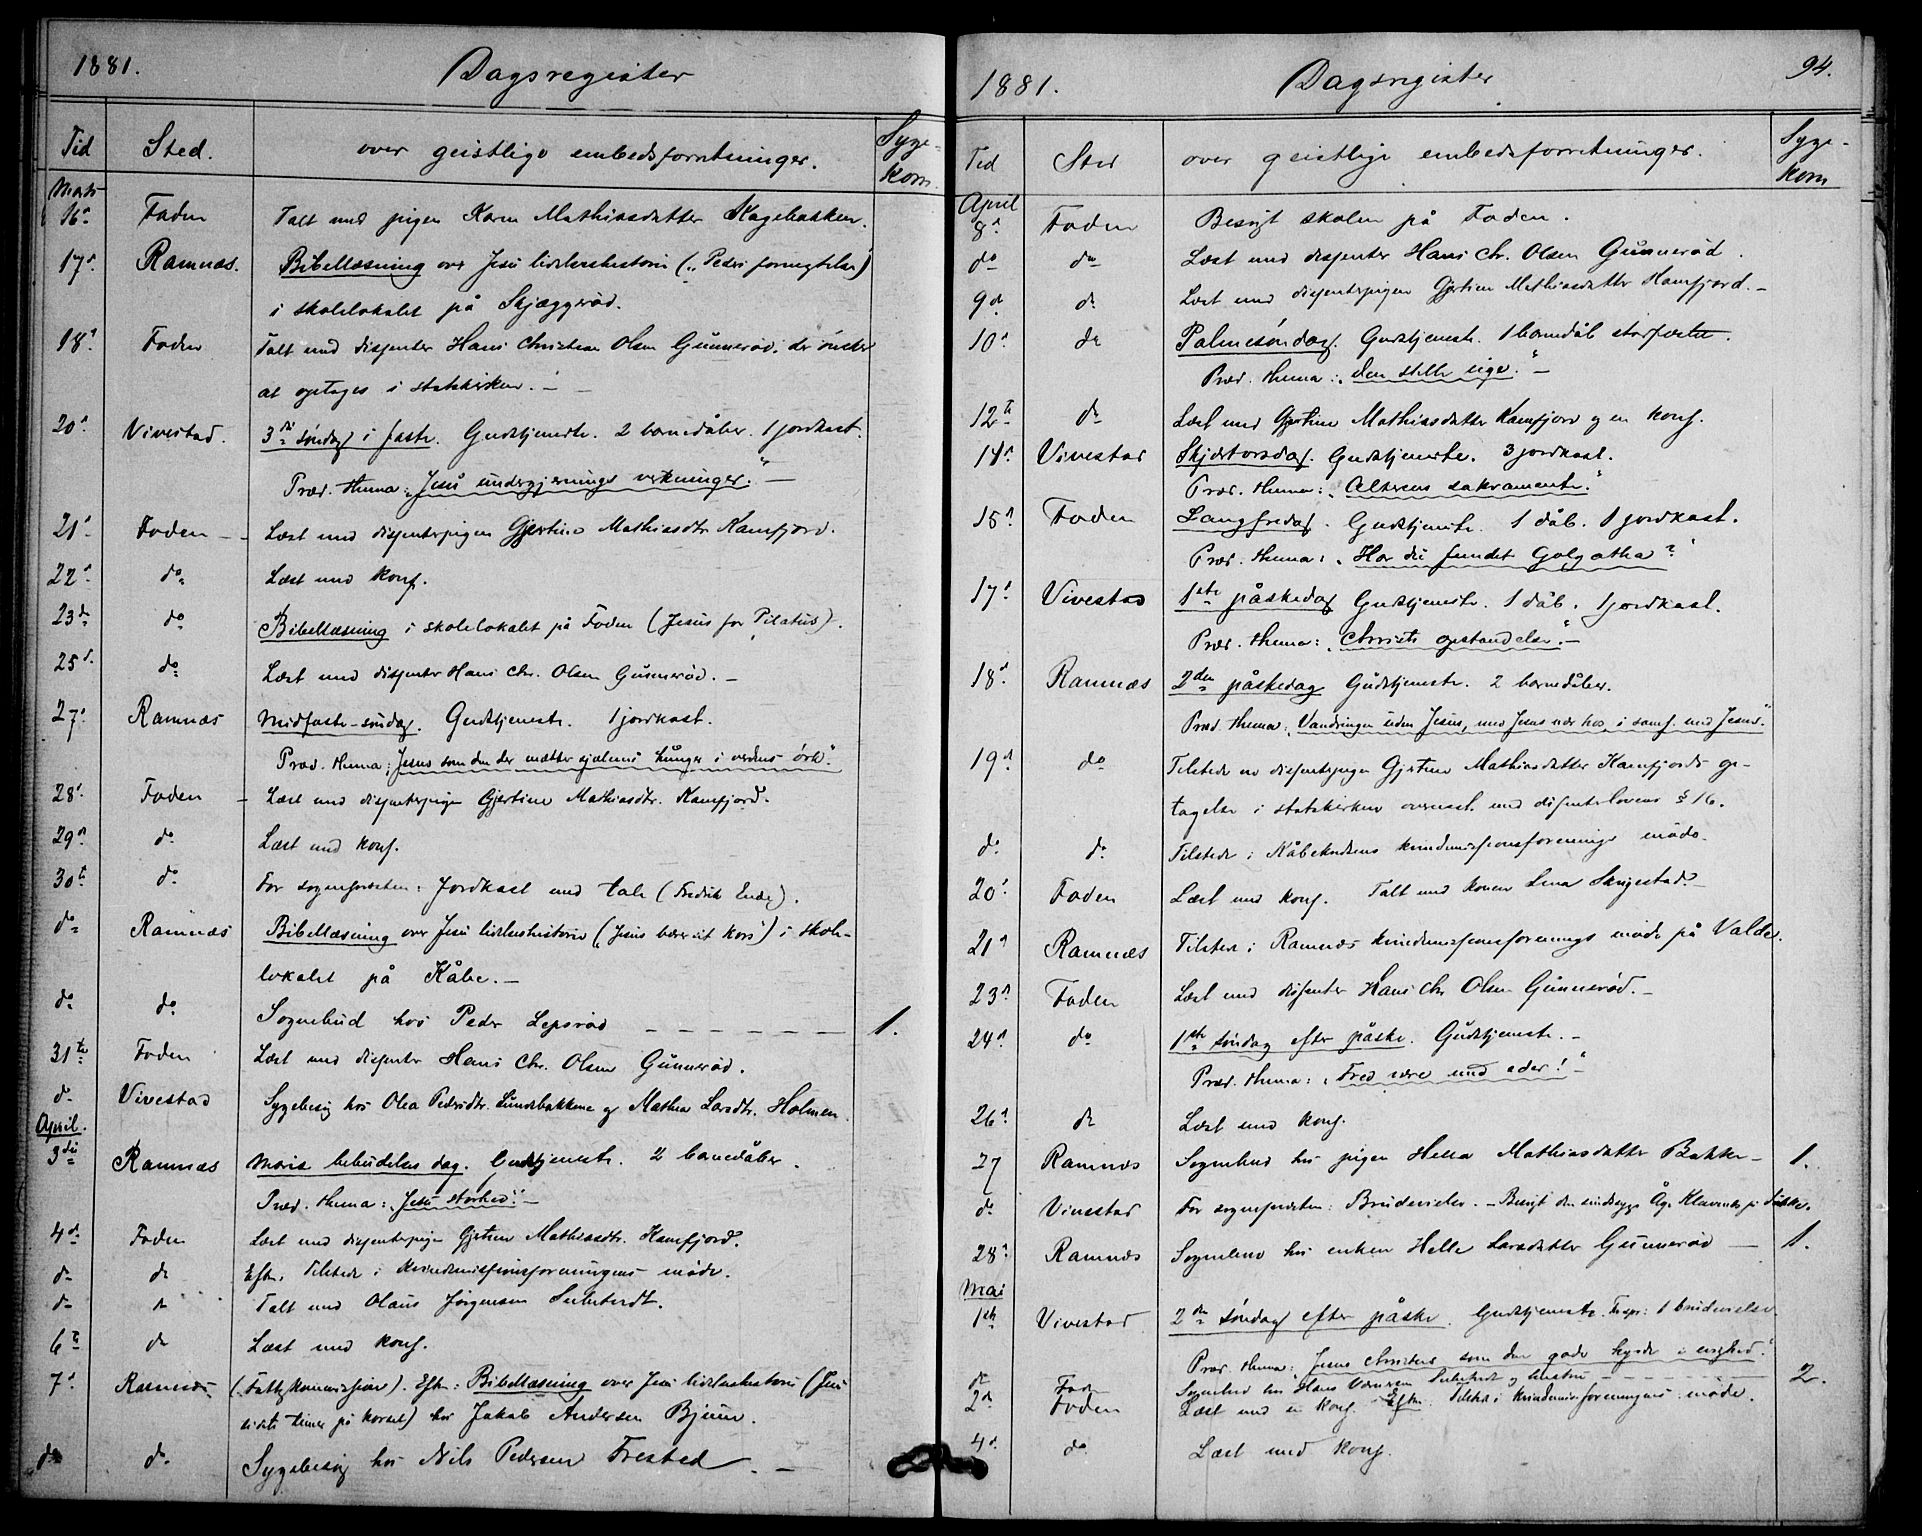 1881. Dagsregister
Tid Sted. over geistlige embedsforretninger. Syge-
Kom.
Marts
16d Foden Talt med pigen Karen Mathiasdatter Skagebakken.
17d Ramnæs. Bibellæsning over Jesu lidelseshistorie („Petri fornegtelse”)
i skolelokalet på Skjæggerød.
18d Foden Talt med disjenter Hans Christian Olsen Gunnerød, der ønsker
at optages i statskirken. –
20d Vivestad. 3die søndag i faste. Gudstjeneste. 2 barnedåber. 1 jordkast.
Præd. thema: „Jesu undergjernings virkninger.” –
21d Foden – Læst med disjenterpigen Gjertine Mathiasdtr Kamfjord.
22d do Læst med konf.
23de do Bibellæsning i skolelokalet på Foden (Jesus for Pilatus).
25d do Læst med disjenter Hans Chr. Olsen Gunnerød. –
27d Ramnæs Midfaste-søndag. Gudstjeneste. 1 jordkast.
Præd. thema: „Jesus som den der mætter sjælens hunger i verdens ørk.”
28d Foden – Læst med disjenterpigen Gjertine Mathiasdtr. Kamfjord.
29d do Læst med konf.
30te do For sognepresten: Jordkast med tale (Fredrik).
do Ramnæs Bibellæsning over Jesu lidelseshistorie („Jesus bærer sit kors”) i skole-
lokalet på Kåbe. –
do do Sognebud hos Peder Lepsrød – – – – – – 1.
31te Foden Læst med disjenter Hans Chr. Olsen Gunnerød.
do Vivestad Sygebesøg hos Olea Pedersdtr. Lundebakkene og Mathea Larsdtr. Holmen
April.
3die Ramnæs Mariæ bebudelses dag. Gudstjeneste. 2 barnedåber.
Præd. thema: „Jesu storhed”. –
4de Foden Læst med disjenterpigen Gjertine Mathiasdtr. Kamfjord.
do do Eftm. Tilstede i kvindemissionsforeningens møde.
do do Talt med Olaus Jørgensen
6te do Læst med konf.
7d Ramnæs (Fattigkommission). Eftm: Bibellæsning over Jesu lidelseshistorie (Jesu
sidste timer på korset) hos Jakob Andersen Bjune.
do do Sygebesøg hos Nils Pedersen Frested. –
1881. Dagsregister 94.
Tid Sted over geistlige embedsforretninger. Syge-
Kom
April
8d Foden Besøgt skolen på Foden.
do do Læst med disjenter Hans Chr. Olsen Gunnerød.
9de do Læst med disjenterpigen Gjertine Mathiasdatter Kamfjord. –
10d do Palmesøndag. Gudstjeneste. 1 barnedåb
Præd. thema: „Den stille uge.” –
12te do Læst med Gjertine Mathiasdatter Kamfjord og en konf.
14d Vivestad Skjærtorsdag. Gudstjeneste. 3 jordkast.
Præd. thema: „Alterens sakramente.”
15d Foden Langfredag. Gudstjeneste. 1 dåb. 1 jordkast.
Præd. thema: „Har du fundet Golgatha?”
17d Vivestad 1ste påskedag Gudstjeneste. 1 dåb. 1 jordkast.
Præd. thema: „Christi opstandelse.” –
18d Ramnæs 2den påskedag Gudstjeneste. 2 barnedåber.
Præd. thema: „Vandringen uden Jesus, med Jesus nær hos, i samf. med Jesus.”
19d do Tilstede ved disjenterpigen Gjertine Mathiasdatter Kamfjords op-
tagelse i statskirken overenst. med disjenterlovens § 16.
do do Tilstede i Kåbekredsens kvindemissionsforenings møde.
20d Foden Læst med konf. Talt med konen Lena Skrigestad. –
21d Ramnæs Tilstede i Ramnæs kvindemissionsforenings møde på Valde.
23d Foden Læst med disjenter Hans Chr Olsen Gunnerød. –
24d do 1ste søndag efter påske. Gudstjeneste. –
Præd. thema: „Fred være med eder!” –
26d do Læst med konf.
27 Ramnæs Sognebud hos pigen Helle Mathiasdatter Bakke – 1.
do Vivestad For sognepresten: Brudevielse. – Besøgt den sindssyge på
28d Ramnæs Sognebud hos enken Helle Larsdatter Gunnerød – 1.
Mai
1ste Vivestad 2den søndag efter påske. Gudstjeneste. 1 brudevielse.
Præd. thema: „Jesus Christus som den gode hyrde i”
do Foden Sognebud hos Hans og hustru – – – – 2.
2d Foden Læst med en konf. Eftm. Tilstede i kvindemissionsforeningens møde.
4d do Læst med konf.